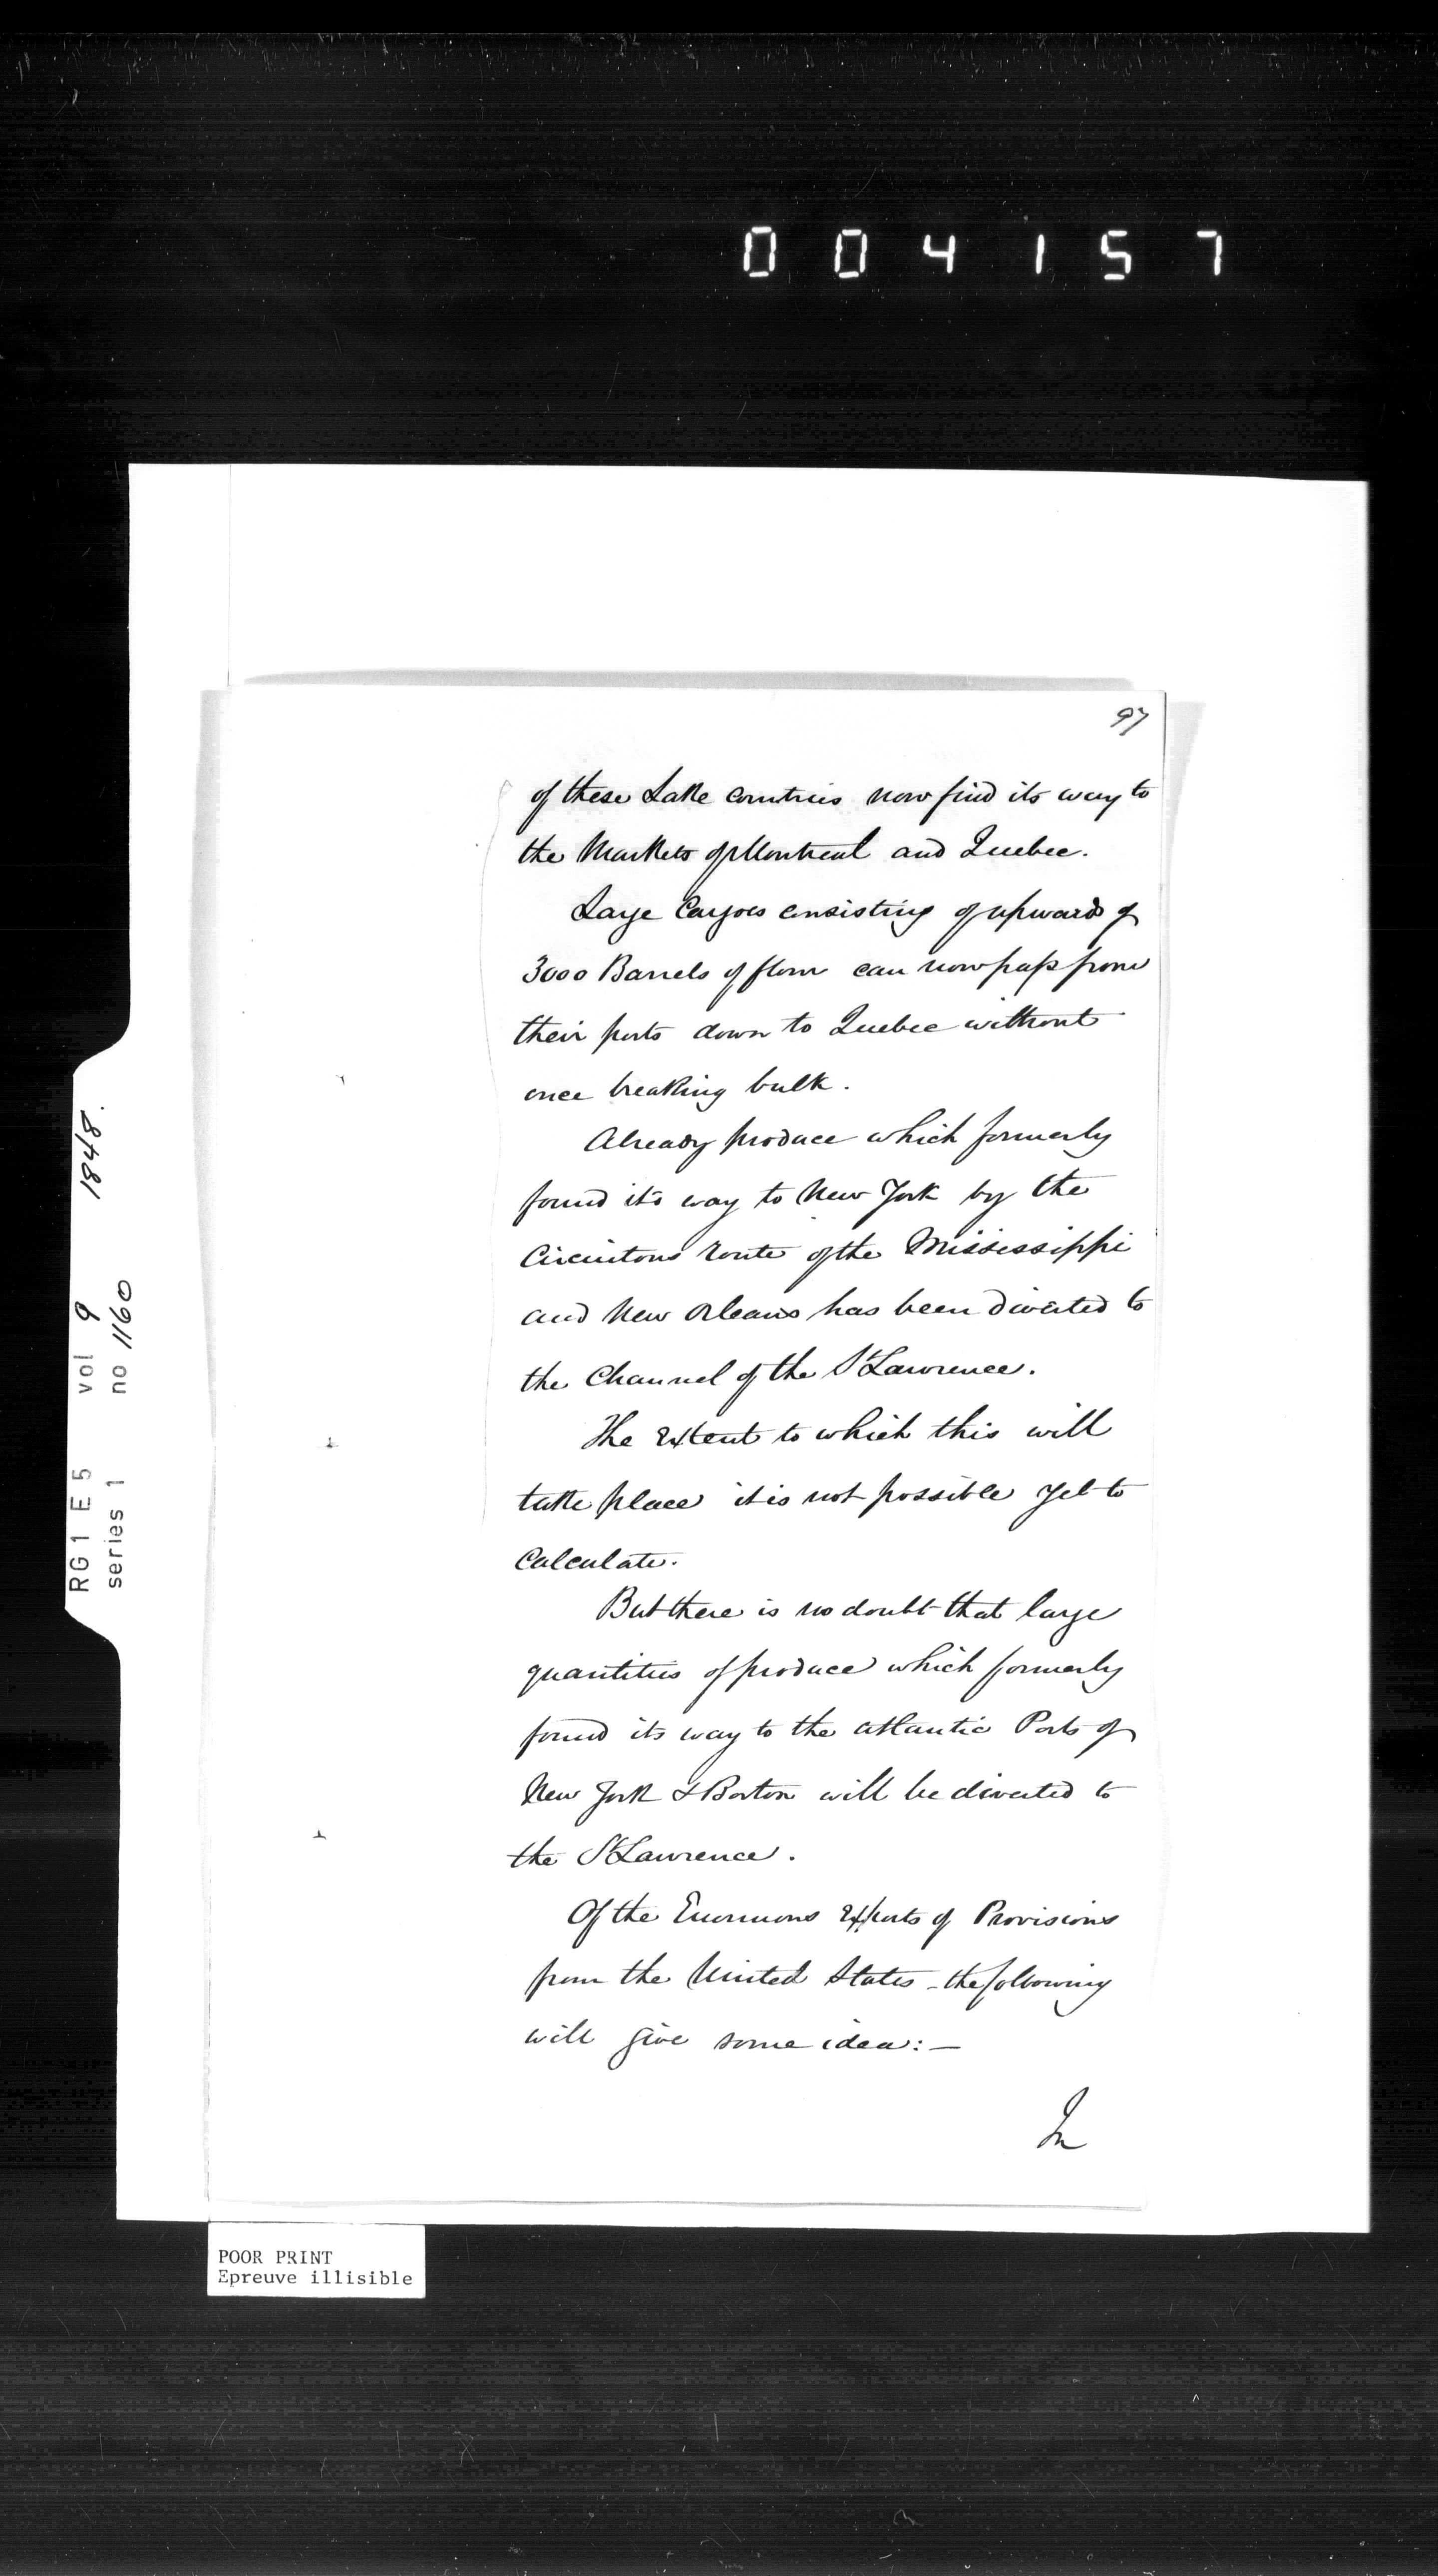 004157
97
of these Lake Countries now find its way to
the Markets of Montreal and Quebec.
Large Cargoes consisting of upwards of
3000 Barrels of flour can now pass from
their ports down to Quebec without
once breaking bulk.
Already produce which formerly
found its way to New York by the
Circuitous route of the Mississippi
and New Orleans has been diverted to
the Channel of the St Lawrence.
The Extent to which this will
take place it is not possible yet to
Calculate.
But there is no doubt that large
quantities of produce which formerly
found its way to the Atlantic Ports of
New York & Boston will be diverted to
the St Lawrence.
Of the Enormous Exports of Provisions
from the United States - the following
will give some idea: —
In
RG1 E5 vol 9 1848.
series 1 no 1160
POOR PRINT
Epreuve illisible